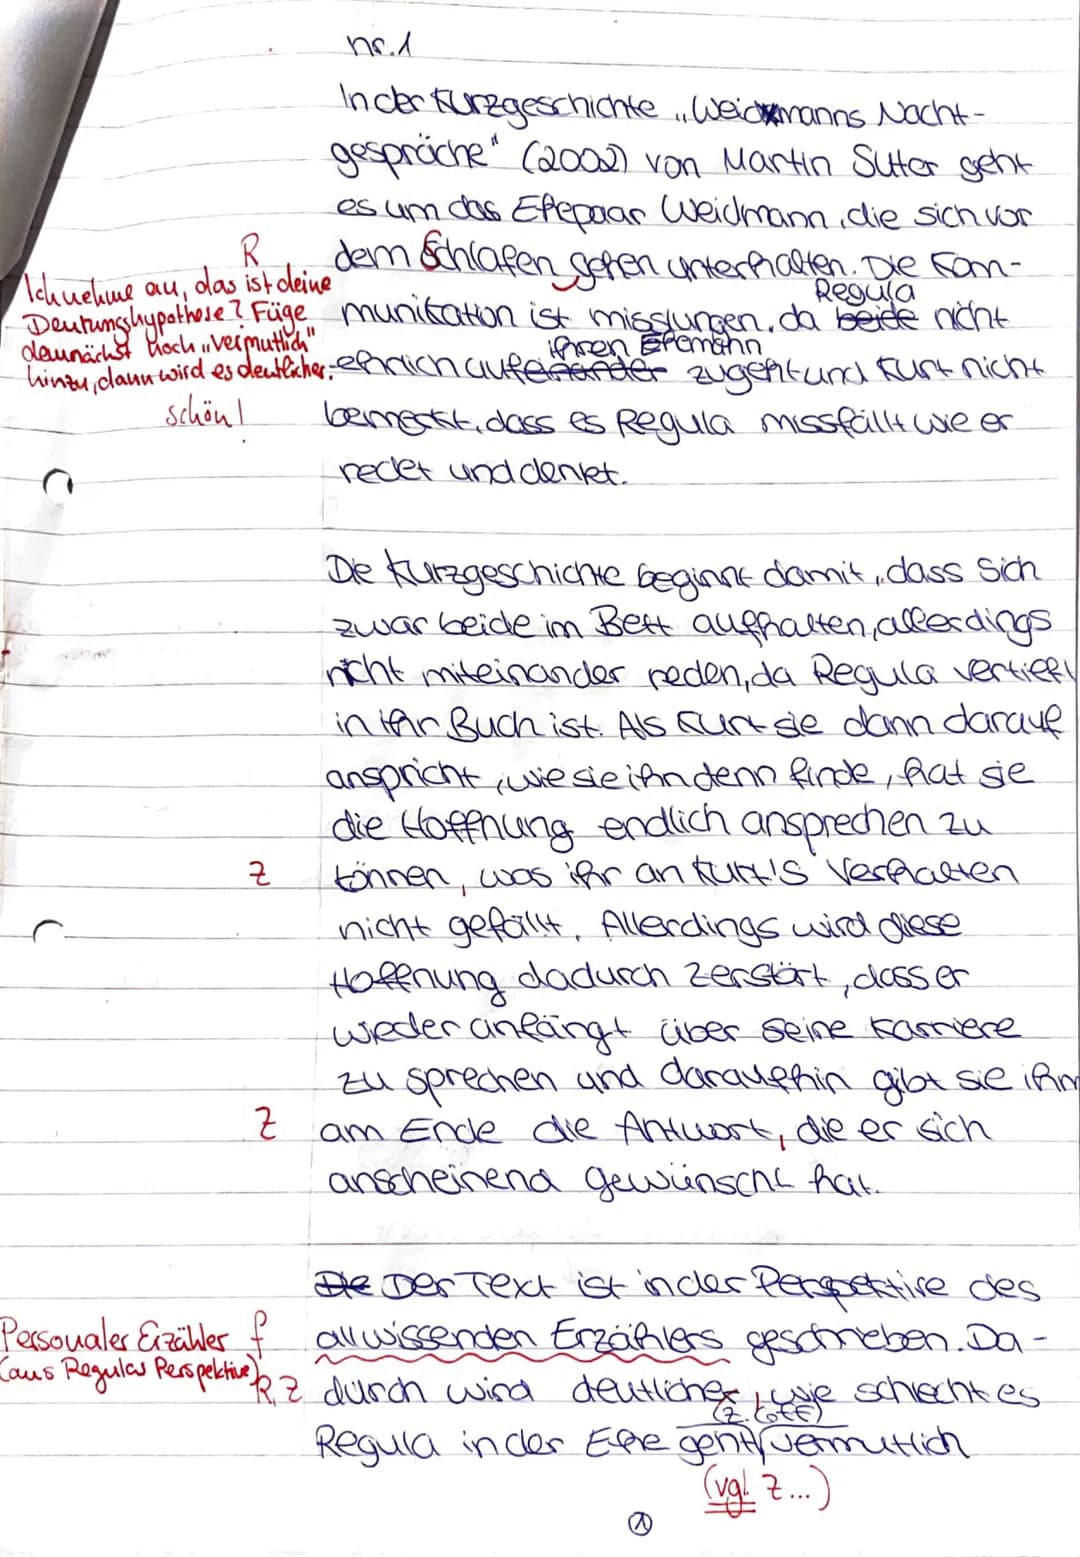 nr.1
In der Kurzgeschichte „Weidmanns Nacht-
gespräche" (2002) von Martin Sutter geht
es um das Ehepaar Weidmann, die sich vor
R
dem Schlafen gehen unterhalten. Die Kom-
Ich nehme an, das ist deine
Deutungshypothese? Füge
demnächst noch „vermutlich"
hinzu, dann wird es deutlicher.
schön!
Regula
munikation ist misslungen, da beide nicht
ihren Ehemann
ehrlich aufeinander zugeht und Kurt nicht
bemerkt, dass es Regula missfällt wie er
redet und denket.
Die Kurzgeschichte beginnt damit, dass sich
zwar beide im Bett aufhalten, allerdings
nicht miteinander reden, da Regula vertieft
in ihr Buch ist. Als Kurt sie dann darauf
anspricht, wie sie ihn denn finde, hat sie
die Hoffnung endlich ansprechen zu
Z können, was ihr an Kurt's Verhalten
nicht gefällt. Allerdings wird diese
Hoffnung dadurch zerstört, dass er
wieder anfängt über seine Karriere
zu sprechen und daraufhin gibt sie ihm
Z am Ende die Antwort, die er sich
anscheinend gewünscht hat.
Die Der Text ist in der Perspektive des
Personaler Erzähler f allwissenden Erzählers geschrieben. Da-
(aus Regulas Perspektive) R, Z durch wird deutlicher, wie schlecht es
Regula in der Ehe geht vermutlich
(vgl. Z...)
1